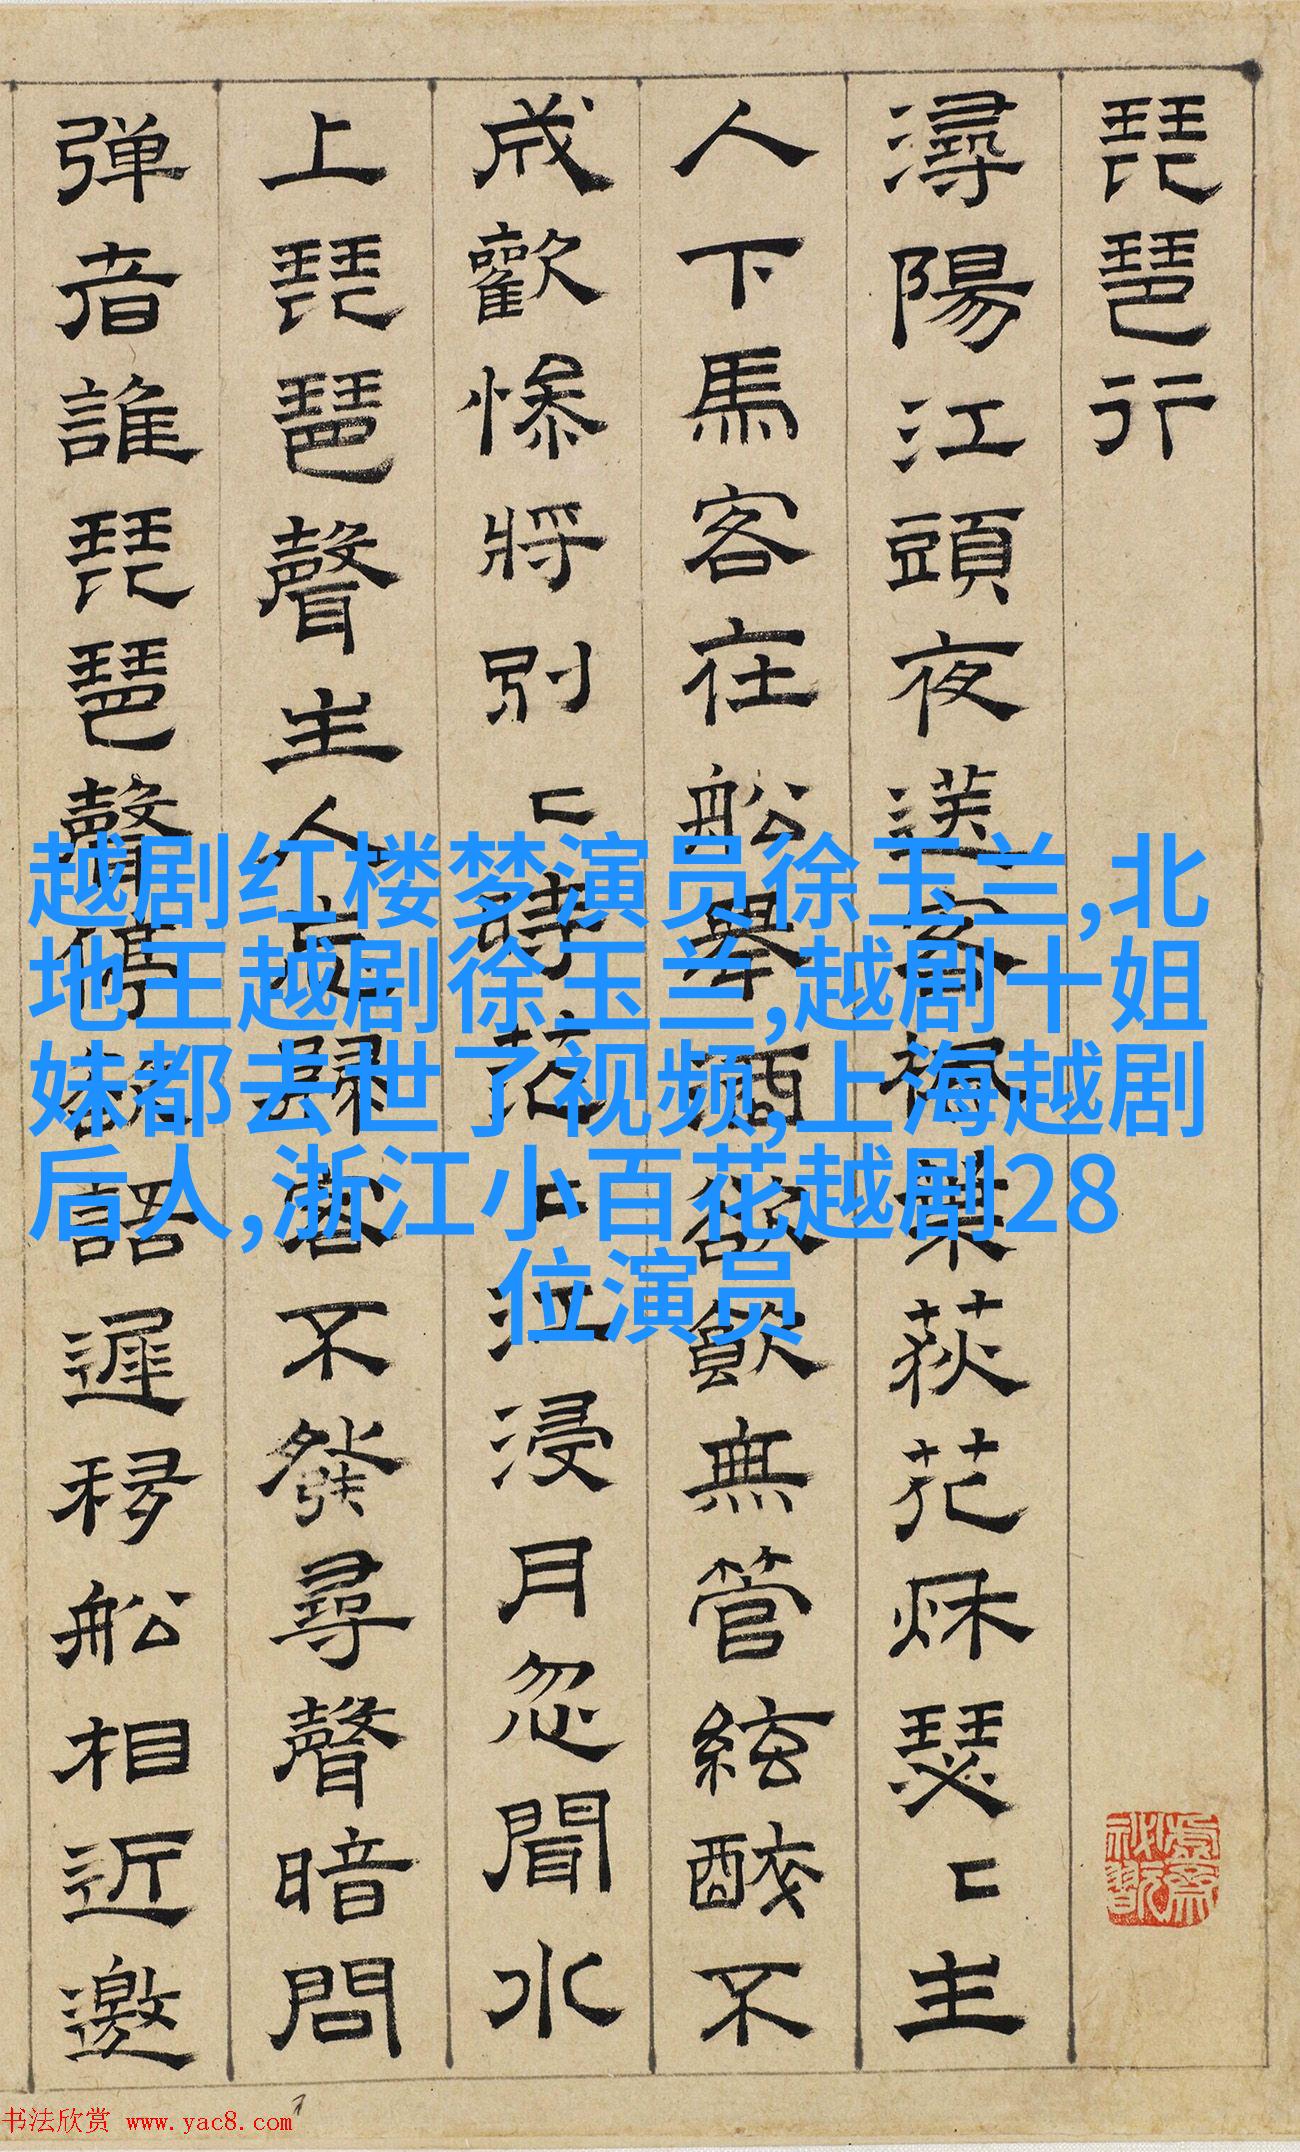 琵琶行
潯陽江頭夜送客楓葉荻花秋瑟〻主
人下馬客在船舉酒欲飲無管絃醉不
成歡慘將別〻時茫〻江浸月忽聞水
上琵琶聲主人忘歸客不發尋聲暗問
弹者誰琵琶聲停欲語遲移船相近邀
越剧红楼梦演员徐玉兰,北
地王越剧徐玉兰,越剧十姐
妹都去世了视频,上海越剧
后人,浙江小百花越剧28
位演员
书法欣赏 www.yac8.com